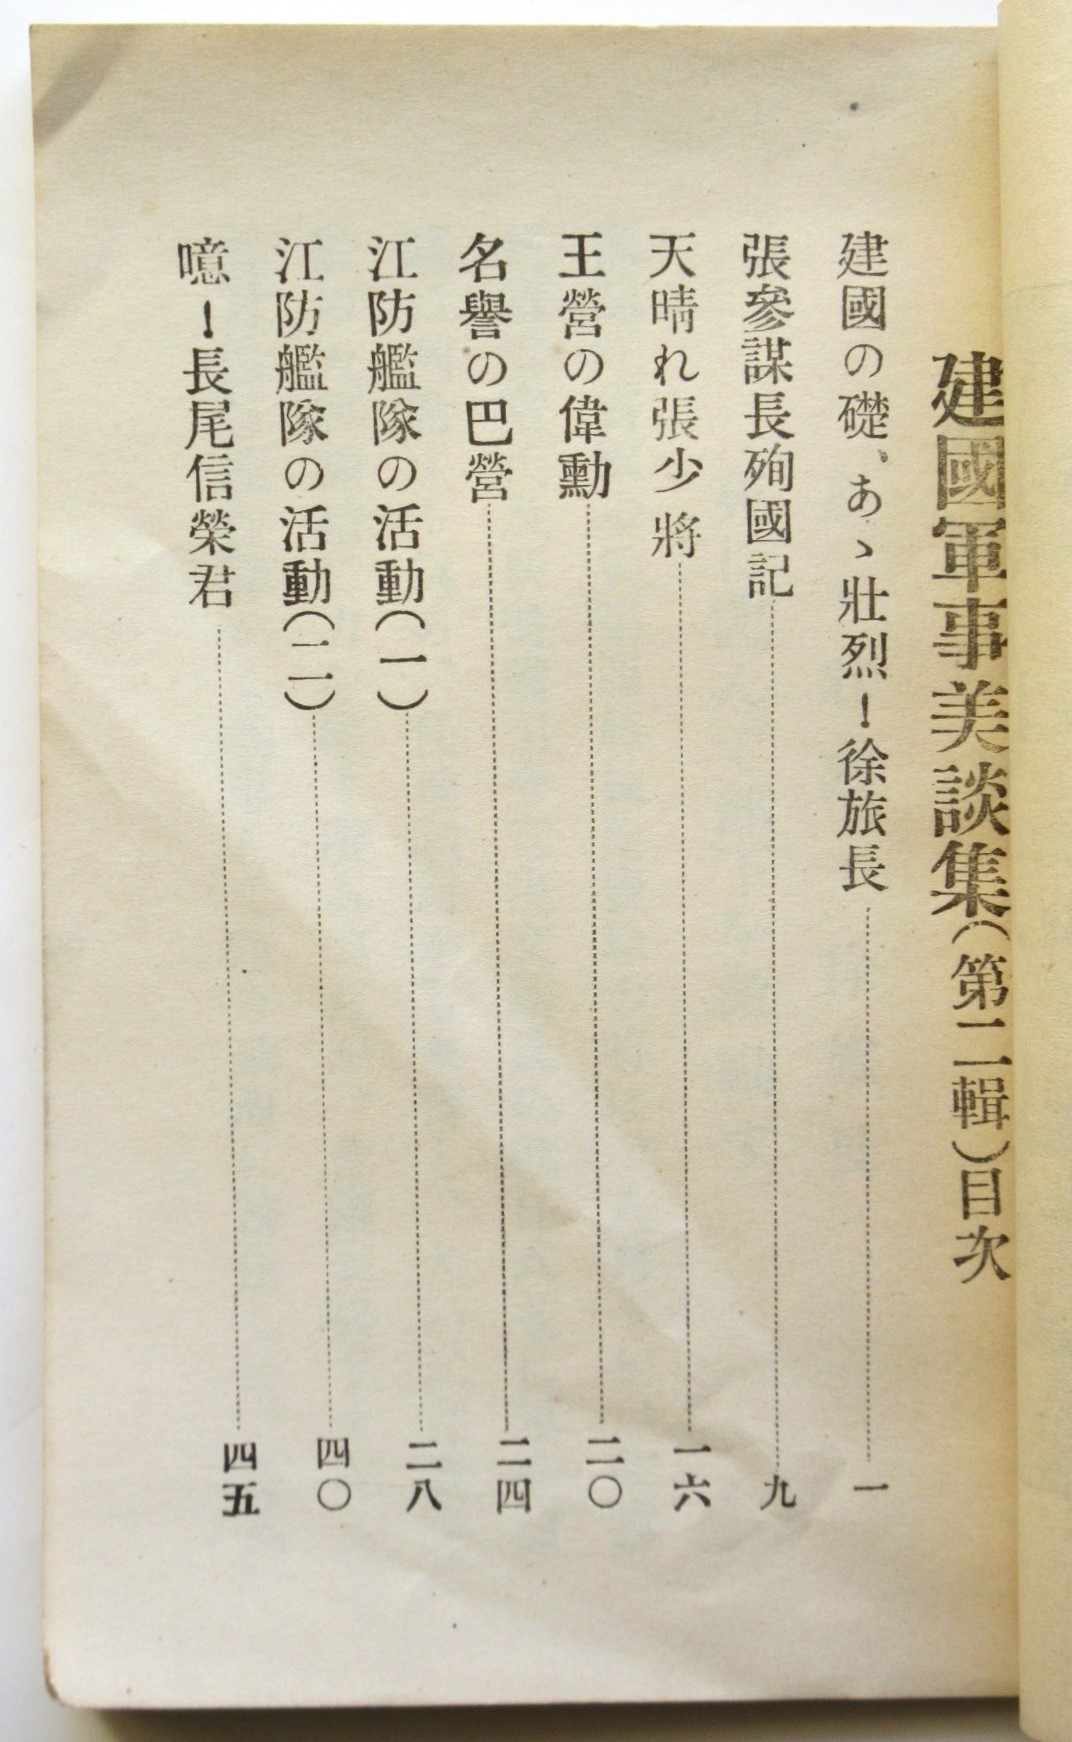 建國軍事美談集(第二輯)目次
建國の礎、あゝ壯烈!徐旅長……一
張參謀長殉國記……九
天晴れ張少將……一六
王營の偉勳……二〇
名譽の巴營……二四
江防艦隊の活動(一)……二八
江防艦隊の活動(二)……四〇
噫!長尾信榮君……四五